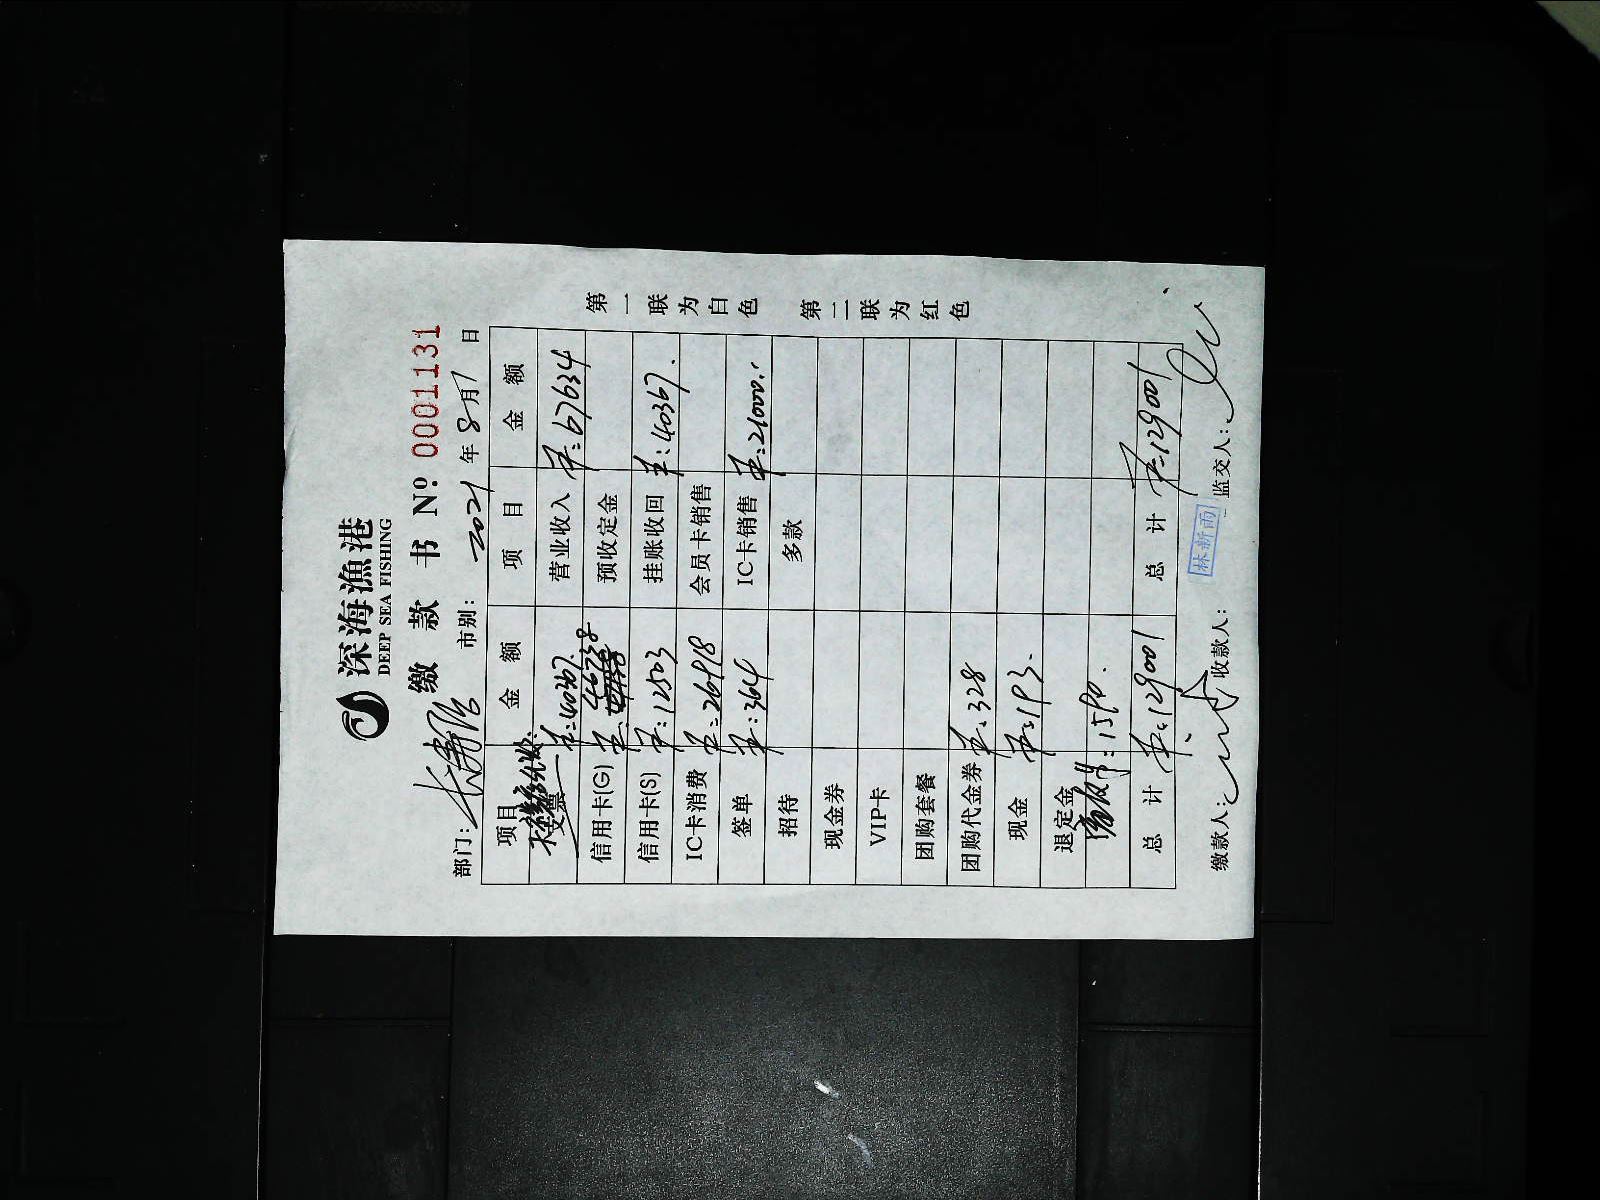 深海漁港
DEEP SEA FISHING
缴 款 书 № 0001131
部门: 市别: 2021 年 8 月 7 日
项目 金 额 项 目 金 额
支票 40367. 营业收入 67634
信用卡(G) 46738 预收定金
信用卡(S) 12503 挂账收回 40367.
IC卡消费 26918 会员卡销售
签单 364 IC卡销售 21000.
招待 多款
现金券
VIP卡
团购套餐
团购代金券 328
现金 193.
退定金
1590.
总 计 129001 总 计 129001
缴款人: 收款人: 林新雨 监交人:
第一联为白色 第二联为红色